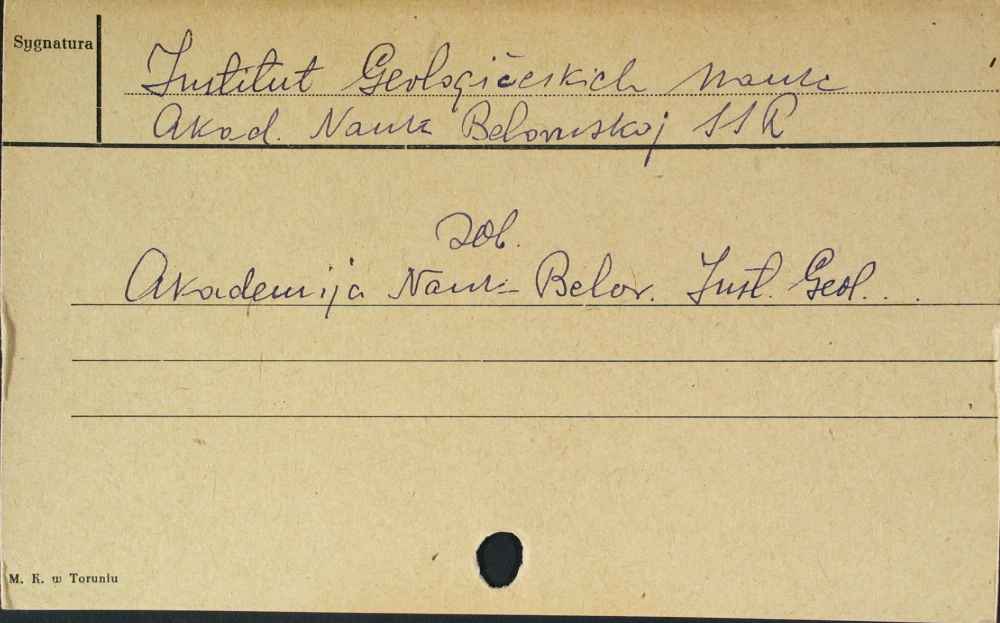 Sygnatura
Institut Geologičeskich Nauk
Akad. Nauk Belorusskoj SSR
zob.
Akademija Nauk Belor. Inst. Geol...
M. K. w Toruniu